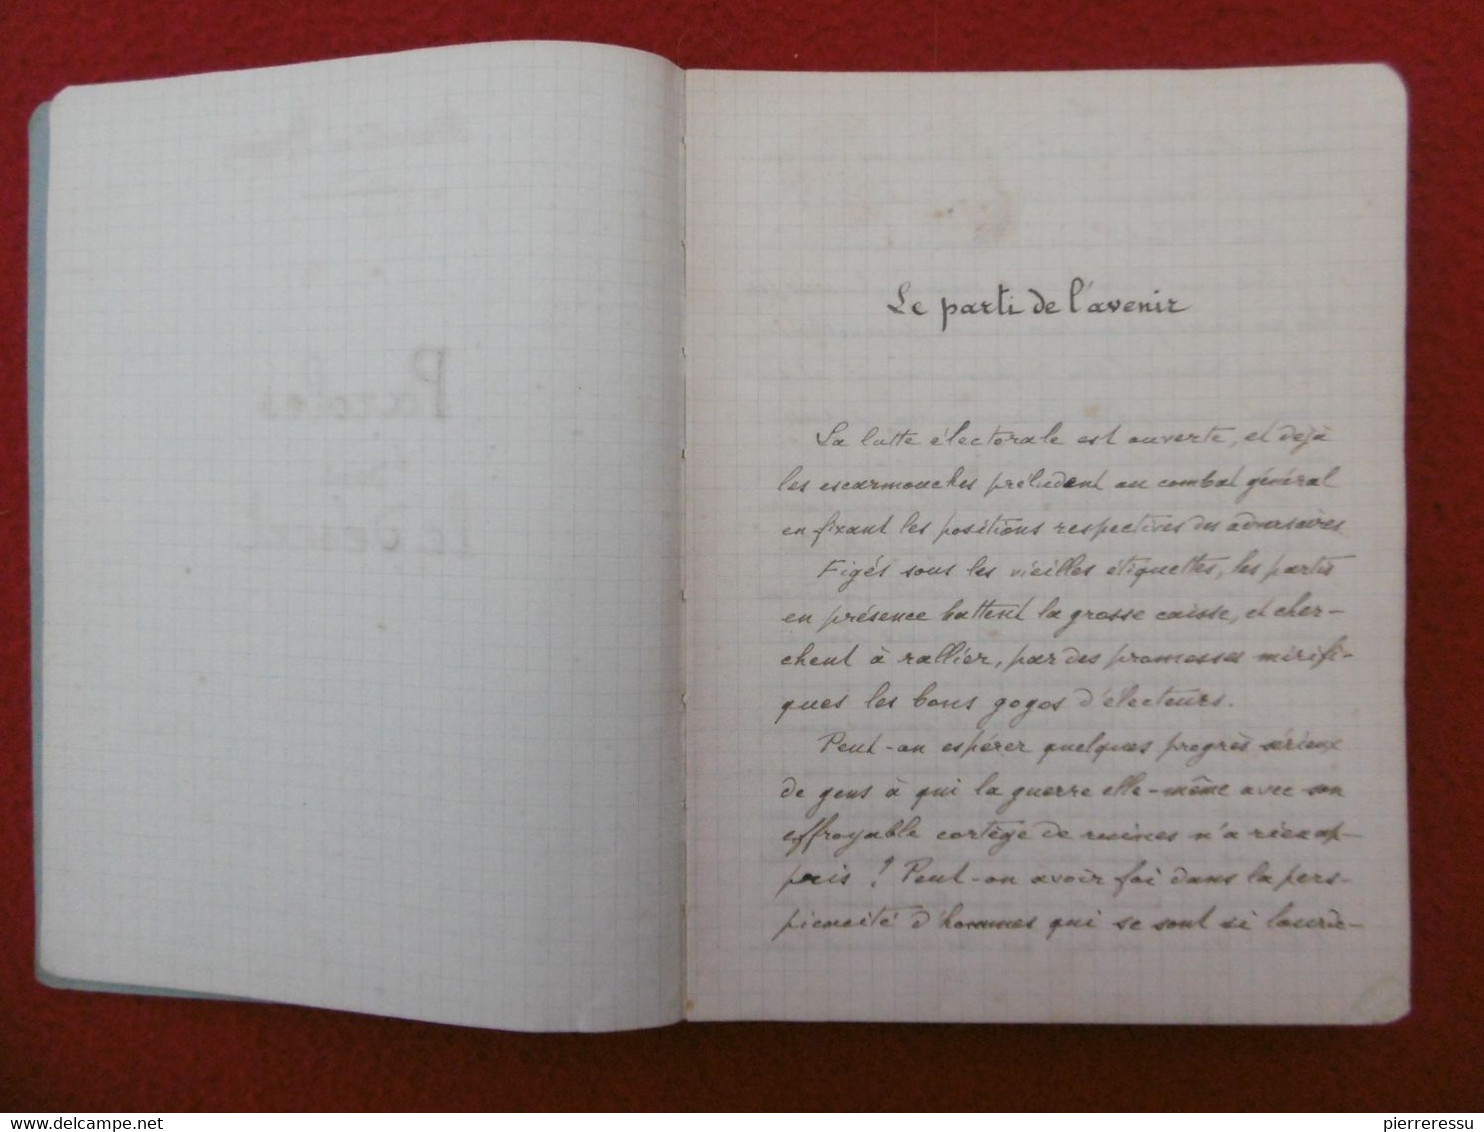 Le parti de l'avenir
La lutte électorale est ouverte, et déjà
les escarmouches préludent au combat général
en fixant les positions respectives des adversaires
Figés sous les vieilles étiquettes, les partis
en présence battent la grosse caisse, et cher-
chent à rallier, par des promesses mirifi-
ques les bons gogos d'électeurs.
Peut-on espérer quelques progrès sérieux
de gens à qui la guerre elle-même avec son
effroyable cortège de ruines n'a rien ap-
pris ! Peut-on avoir foi dans la pers-
picacité d'hommes qui se sont si lourde-
delcampe.net
pierreressu